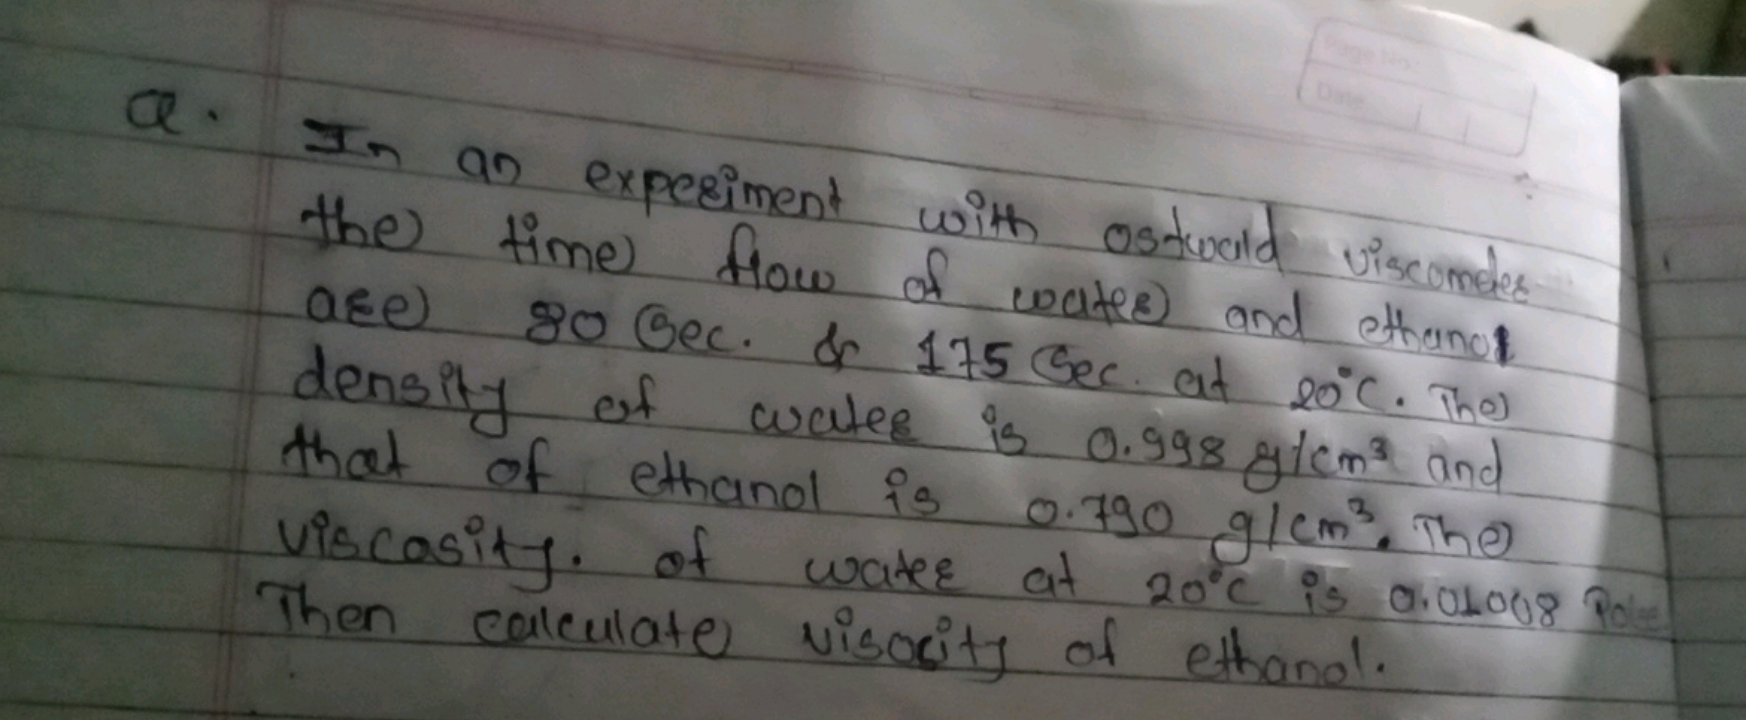 Page No.
Date
Q. In an experiment with ostwald viscometer
the time flow of water and ethanol
are 80 Sec. & 175 Sec. at 20°C. The
density of water is 0.998 g/cm³ and
that of ethanol is 0.790 g/cm³. The
viscasity. of water at 20°C is 0.01008 Poise
Then calculate visocity of ethanol.